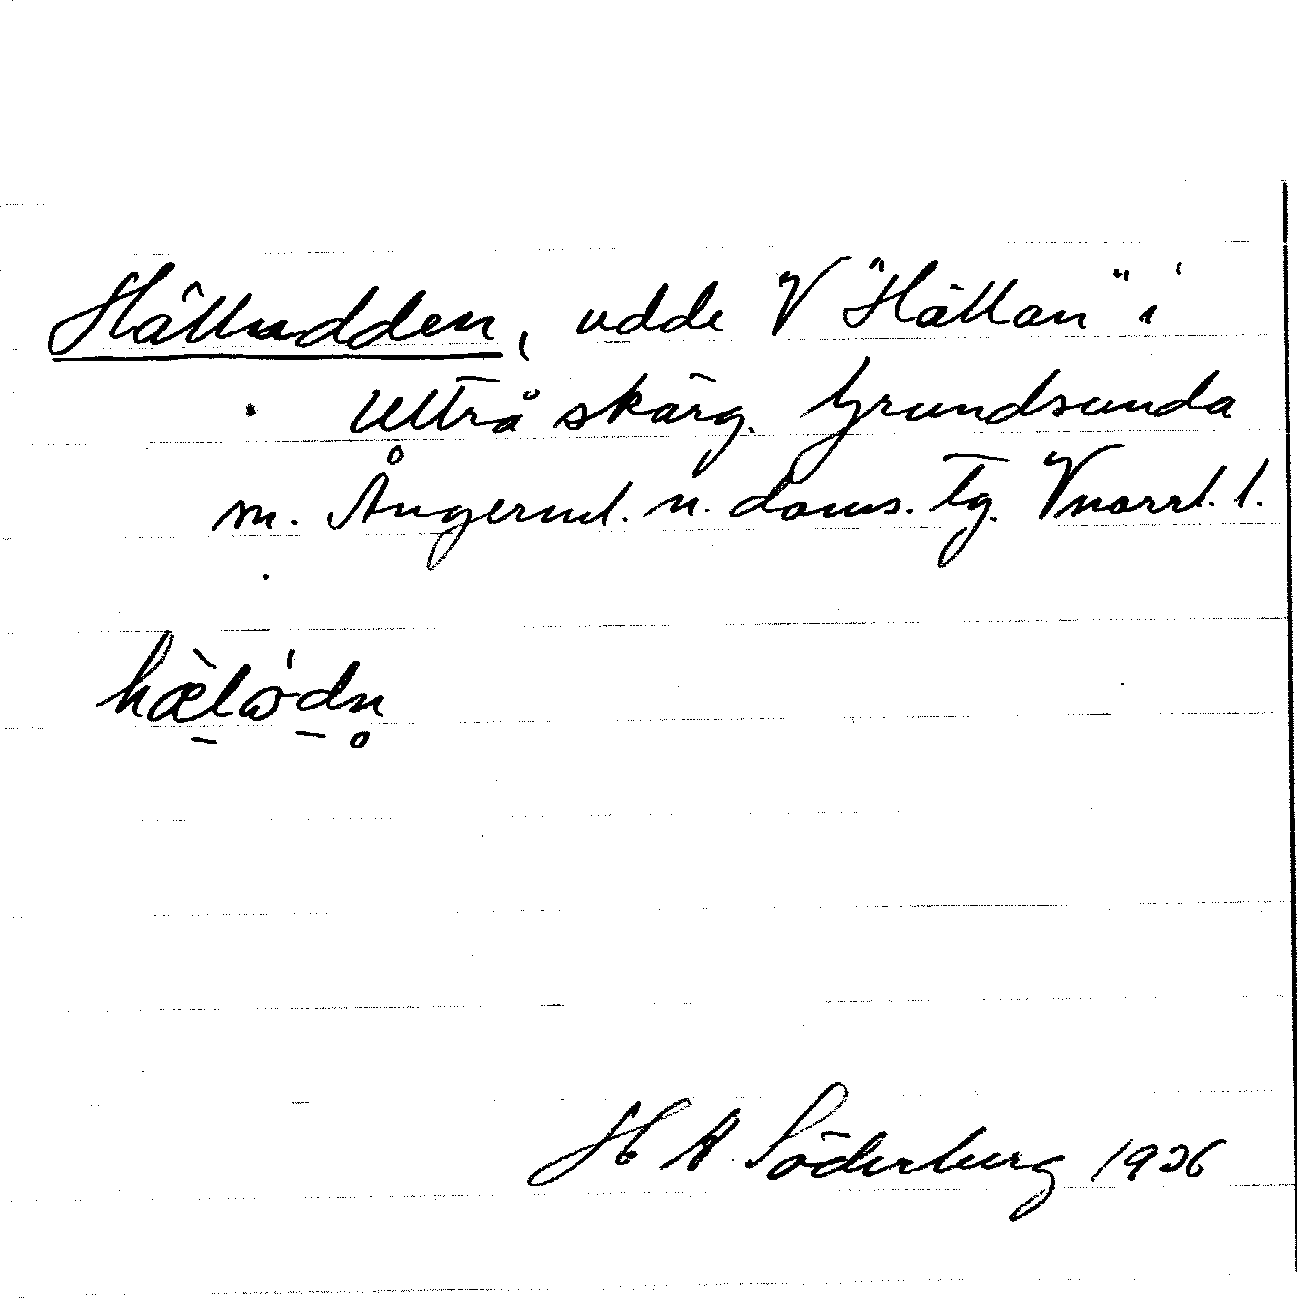 Hälludden, udde V "Hällan" i
Ulträ skärg. Grundsunda
m. Ångerml. n. doms. tg. Vnorrl. l.
hæ̀lω̇dn̥
H A Söderberg 1936